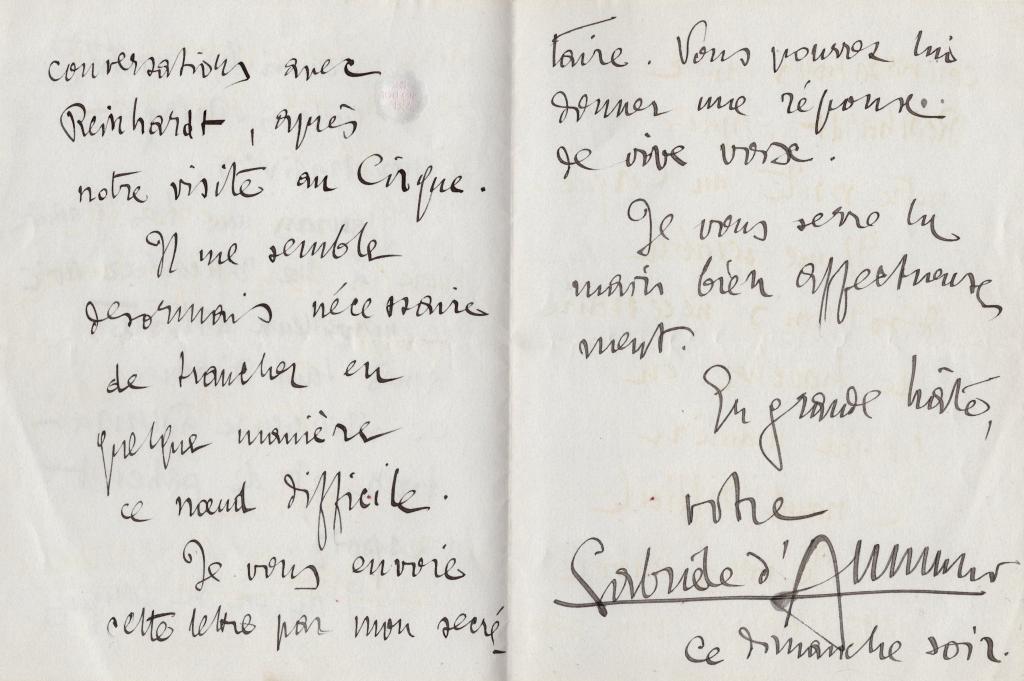 conversations avec
Reinhardt, après
notre visite au Cirque.
Il me semble
desormais nécessaire
de trancher en
quelque manière
ce nœud difficile.
Je vous envoie
cette lettre par mon secré
taire. Vous pourrez lui
donner une réponse
de vive voix.
Je vous serre la
main bien affectueuse
ment.
En grande hâte,
votre
Gabriele d'Annunzio
ce dimanche soir.